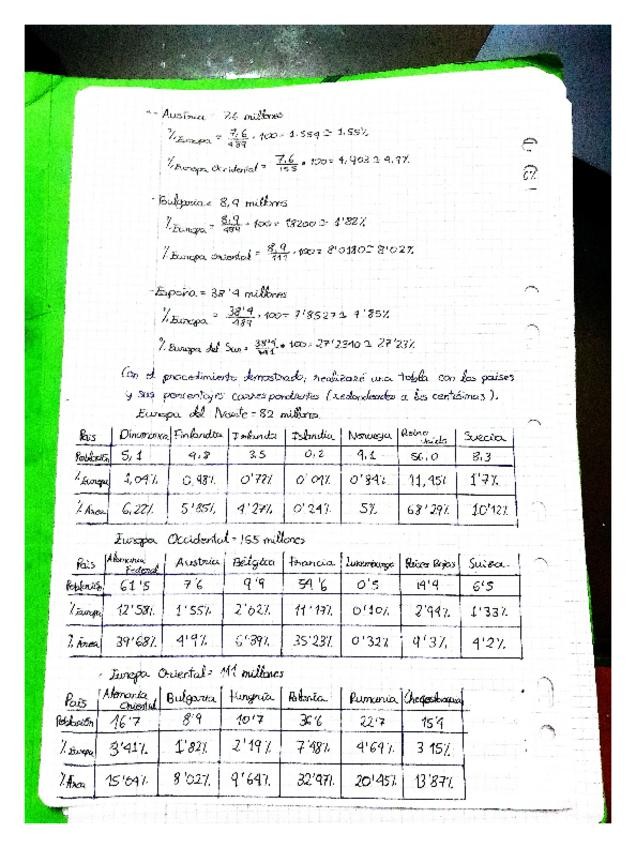 - Austria = 7.6 millones
% Europa = 7,6/489 · 100 = 1.554 ≃ 1.55%
% Europa Occidental = 7.6/155 · 100 = 4,903 ≃ 4.9%
- Bulgaria = 8,9 millones
% Europa = 8,9/489 · 100 = 1'8200 ≃ 1'82%
% Europa oriental = 8,9/111 · 100 = 8'0180 ≃ 8'02%
- España = 38'4 millones
% Europa = 38'4/489 · 100 = 7'8527 ≃ 7'85%
% Europa del Sur = 38'4/141 · 100 = 27'2340 ≃ 27'23%
Con el procedimiento demostrado, realizaré una tabla con los países
y sus porcentajes correspondientes (redondeados a las centésimas).
Europa del Norte = 82 millones
País Dinamarca Finlandia Irlanda Islandia Noruega Reino Unido Suecia
Población 5,1 4,8 3.5 0,2 4,1 56,0 8,3
% Europa 1,04% 0,98% 0'72% 0'04% 0'84% 11,45% 1'7%
% Área 6,22% 5'85% 4'27% 0'24% 5% 68'29% 10'12%
Europa Occidental = 155 millones
País Alemania Federal Austria Bélgica Francia Luxemburgo Países Bajos Suiza
Población 61'5 7'6 9'9 54'6 0'5 14'4 6'5
% Europa 12'58% 1'55% 2'02% 11'17% 0'10% 2'94% 1'33%
% Área 39'68% 4'9% 6'39% 35'23% 0'32% 9'3% 4'2%
- Europa Oriental = 111 millones
País Alemania Oriental Bulgaria Hungría Polonia Rumania Checoslovaquia
Población 16'7 8'9 10'7 36'6 22'7 15'4
% Europa 3'41% 1'82% 2'19% 7'48% 4'64% 3'15%
% Área 15'04% 8'02% 9'64% 32'97% 20'45% 13'87%